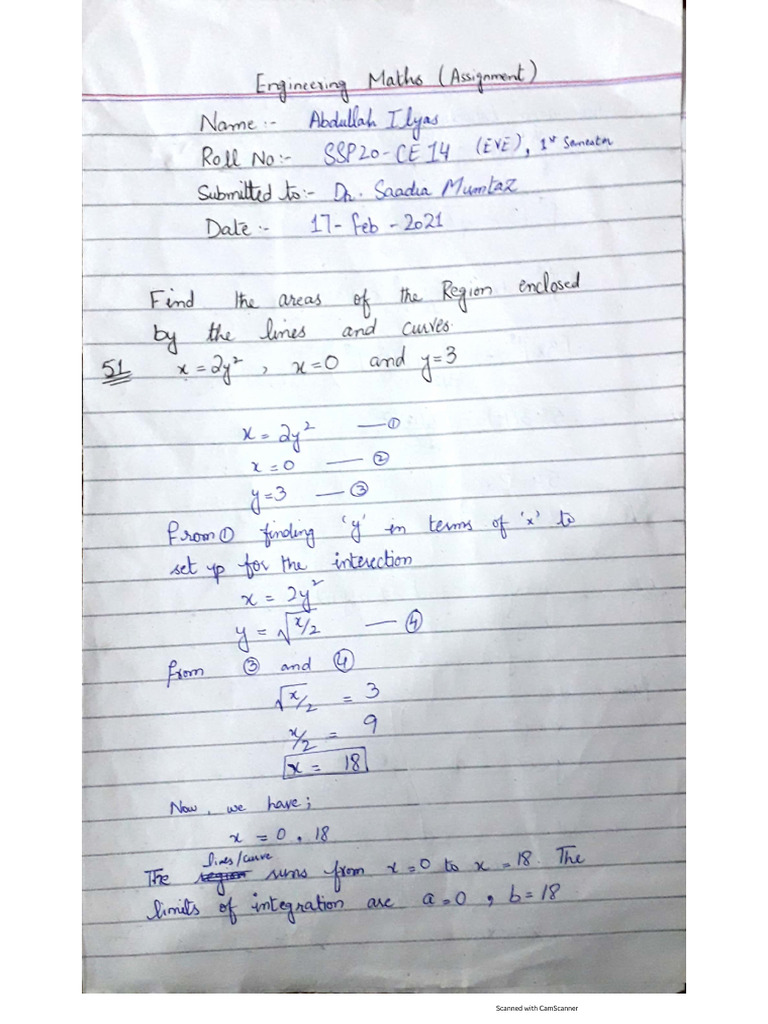 Engineering Maths (Assignment)
Name :- Abdullah Ilyas
Roll No:- SSP20-CE14 (EVE), 1st Semester
Submitted to:- Dr. Saadia Mumtaz
Date :- 17-Feb-2021
Find the areas of the Region enclosed
by the lines and curves.
51 x = 2y², x=0 and y=3
x = 2y² — ①
x = 0 — ②
y=3 — ③
From ① finding 'y' in terms of 'x' to
set up for the interection
x = 2y²
y = √x/2 — ④
from ③ and ④
√x/2 = 3
x/2 = 9
x = 18
Now, we have;
x = 0, 18
lines/curve
The region runs from x=0 to x=18. The
limits of integration are a=0, b=18
Scanned with CamScanner